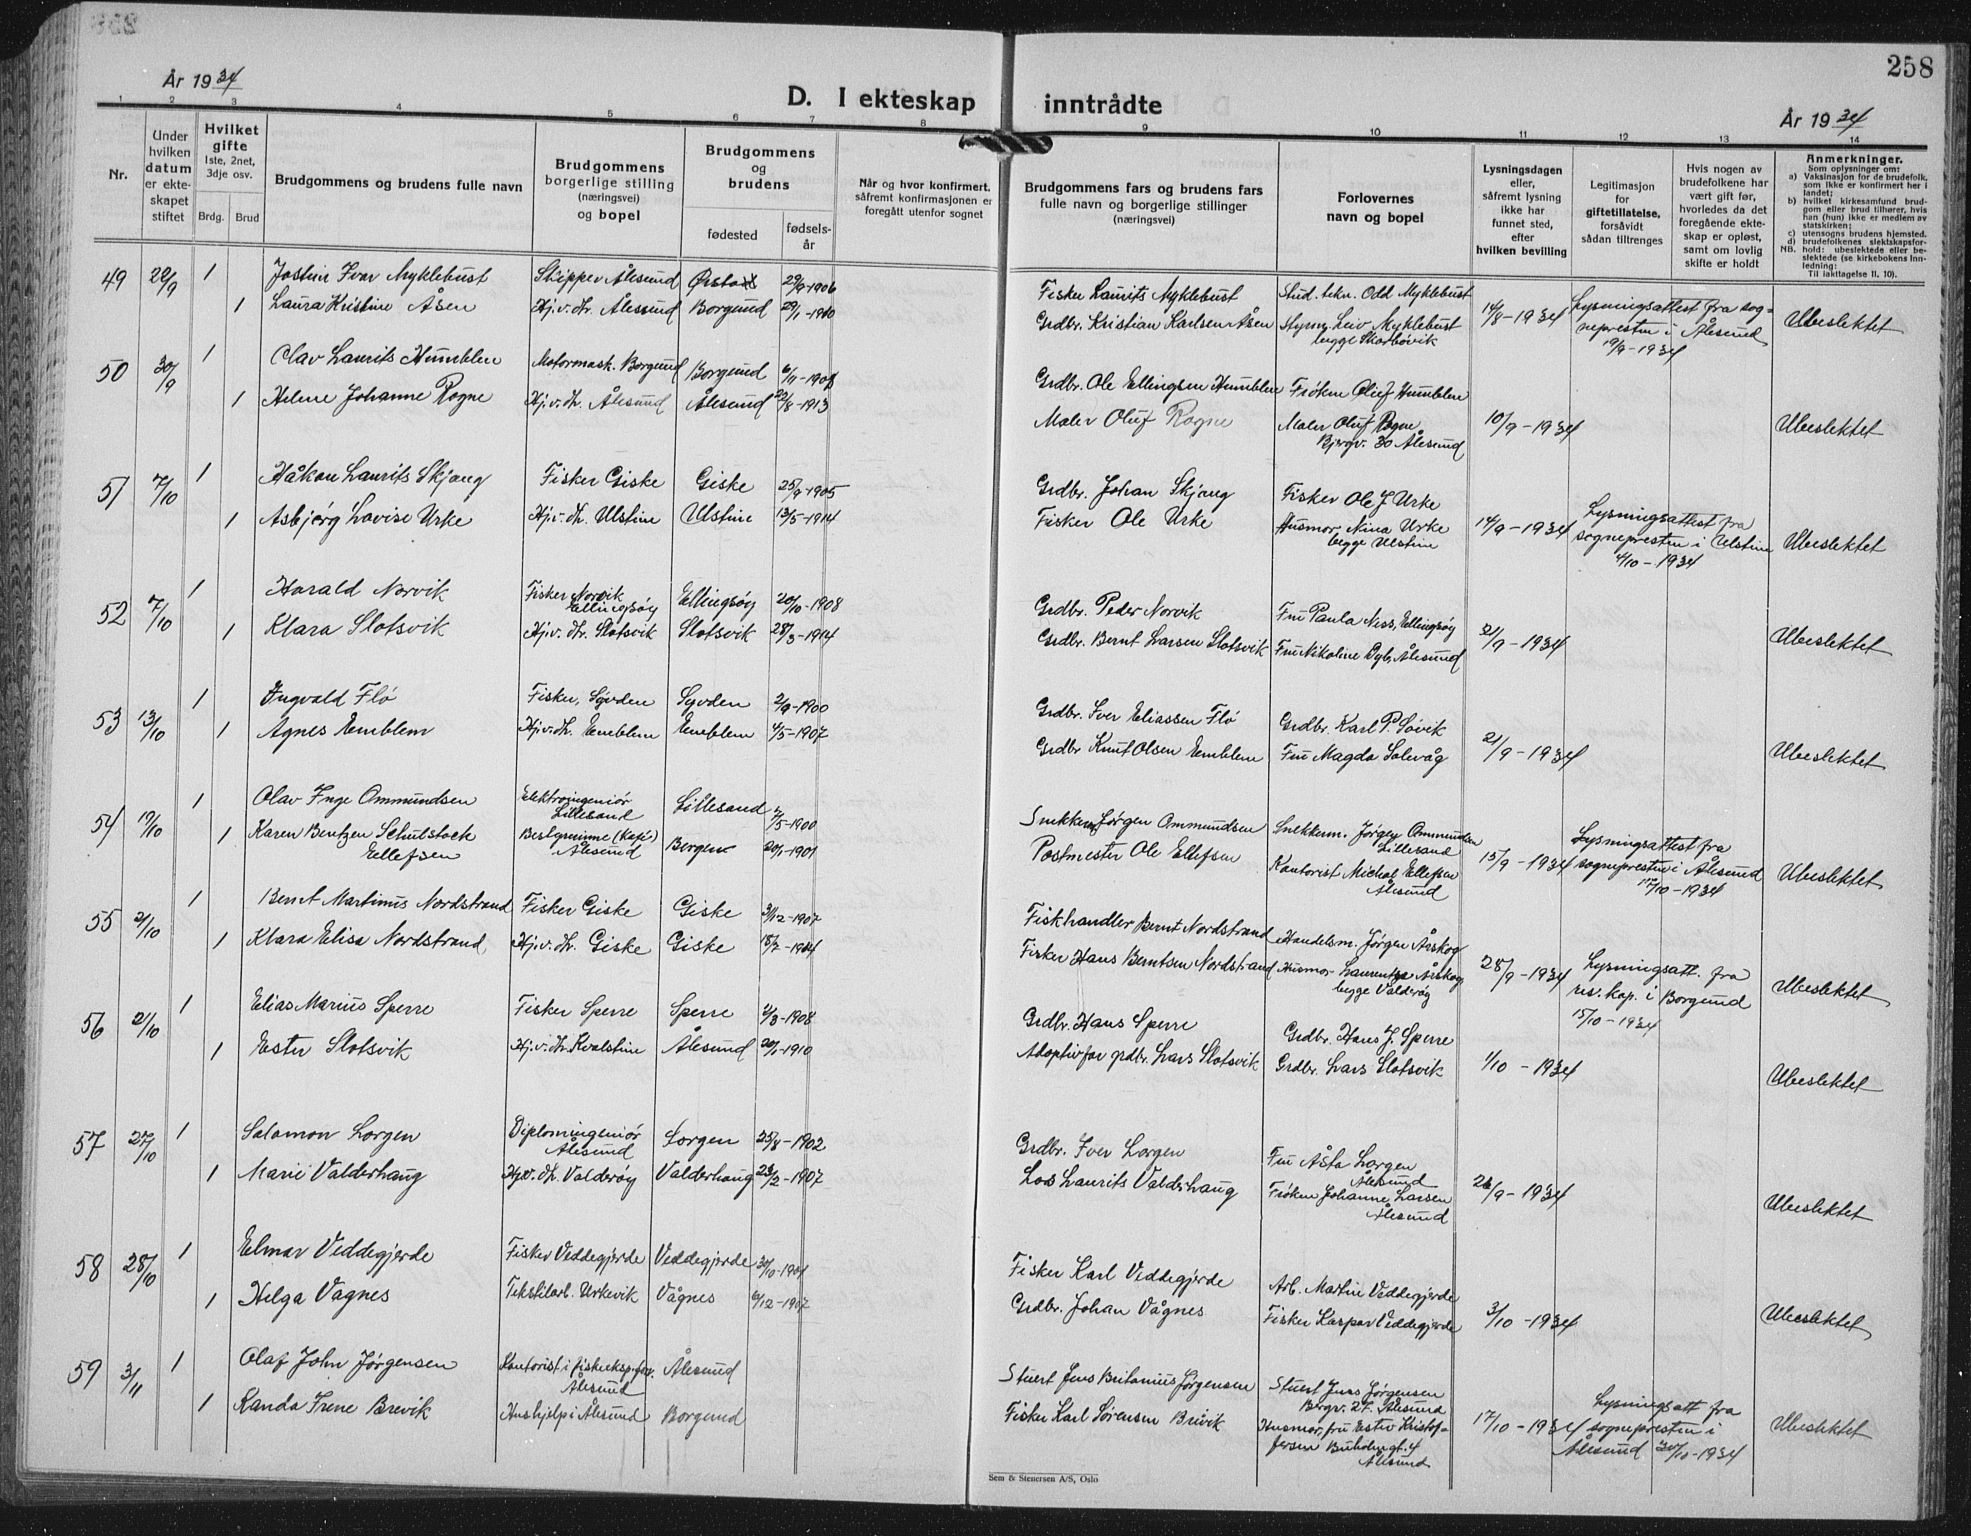 258
År 1934
D. I ekteskap inntrådte
År 1934
1 2 3 4 5 6 7 8 9 10 11 12 13 14
Nr.
Under
hvilken
datum
er ekte-
skapet
stiftet
Hvilket
gifte
1ste, 2net,
3dje osv.
Brdg. Brud
Brudgommens og brudens fulle navn
Brudgommens
borgerlige stilling
(næringsvei)
og bopel
Brudgommens
og
brudens
fødested
fødsels-
år
Når og hvor konfirmert,
såfremt konfirmasjonen er
foregått utenfor sognet
Brudgommens fars og brudens fars
fulle navn og borgerlige stillinger
(næringsvei)
Forlovernes
navn og bopel
Lysningsdagen
eller,
såfremt lysning
ikke har
funnet sted,
efter
hvilken bevilling
Legitimasjon
for
giftetillatelse,
forsåvidt
sådan tiltrenges
Hvis nogen av
brudefolkene har
vært gift før,
hvorledes da det
foregående ekte-
skap er opløst,
samt om lovlig
skifte er holdt
Anmerkninger.
Som oplysninger om:
a) Vaksinasjon for de brudefolk,
som ikke er konfirmert her i
landet;
b) hvilket kirkesamfund brud-
gom eller brud tilhører, hvis
han (hun) ikke er medlem av
statskirken;
c) utensogns brudens hjemsted.
d) brudefolkenes slektskapsfor-
hold: ubeslektede eller be-
slektede (se kirkebokens Inn-
ledning:
NB. Til iakttagelse II. 10).
49 22/9 1 Jostein Ivar Myklebust Skipper Ålesund Ørsta 29/9-1906 Fisker Laurits Myklebust Stud. tekn. Odd Myklebust
1 Laura Kristine Åsen Hj.v.dr. Ålesund Borgund 29/1-1910 Grdbr. Kristian Karlsen Åsen Styrm. Leiv Myklebust
begge Skarbøvik 14/8-1934 Lysningsattest fra sog-
nepresten i Ålesund
19/9-1934 Ubeslektet
50 30/9 1 Olav Laurits Humblen Motormask. Borgund Borgund Grdbr. Ole Ellingsen Humblen Frøken Oluf Humblen
1 Helene Johanne Rogne Hj.v.dr. Ålesund Ålesund 22/8-1913 Maler Oluf Rogne Maler Oluf Rogne
Bjergv. 30 Ålesund 10/9-1934 Ubeslektet
51 7/10 1 Håkon Laurits Skjong Fisker Giske Giske 25/9-1905 Grdbr. Johan Skjong Fisker Ole J Urke
1 Asbjørg Lovise Urke Hj.v.dr. Ulstein Ulstein 13/5-1914 Fisker Ole Urke Husmor Nina Urke
begge Ulstein 14/9-1934 Lysningsattest fra
sognepresten i Ulstein
4/10-1934 Ubeslektet
52 7/10 1 Harald Norvik Fisker Norvik
Ellingsøy Ellingsøy 20/10-1908 Grdbr. Peder Norvik Fru Paula Ness, Ellingsøy
1 Klara Slotsvik Hj.v.dr. Slotsvik Slotsvik 28/3-1914 Grdbr. Bernt Larsen Slotsvik Fru Nikoline Dyb, Ålesund 21/9-1934 Ubeslektet
53 13/10 1 Ingvald Flø Fisker, Syvden Syvden 2/9-1900 Grdbr. Iver Eliassen Flø Grdbr. Karl P. Søvik
1 Agnes Emblem Hj.v.dr. Emblem Emblem 4/5-1907 Grdbr Knut Olsen Emblem Fru Magda Solevåg 21/9-1934 Ubeslektet
54 1 Olav Inge Ommundsen Elektroingeniør
Lillesand Lillesand Snekkerm Jørgen Ommundsen Snekkerm. Jørgen Ommundsen
Lillesand
1 Karen Bentzen Schulstock
Ellefsen Bestyrerinne (kafé)
Ålesund Bergen 20/1-1901 Postmester Ole Ellefsen Kontorist Michal Ellefsen
Ålesund 15/9-1934 Lysningsattest fra
sognepresten i Ålesund
Ubeslektet
55 21/10 1 Bernt Martinus Nordstrand Fisker Giske Giske 31/12-1907 Fiskhandler Bernt Nordstrand Handelsm. Jørgen Årskog
1 Klara Elisa Nordstrand Hj.v.dr. Giske Giske Fisker Hans Berntsen Nordstrand Husmor Laurentze Årskog
begge Valderøy 28/9-1934 Lysningsatt. fra
res. kap. i Borgund
15/10-1934 Ubeslektet
56 21/10 1 Elias Marius Sperre Fisker Sperre Sperre Grdbr. Hans Sperre Grdbr. Hans J. Sperre
1 Ester Slotsvik Hj.v.dr. Kvalstein Ålesund 20/1-1910 Adoptivfar grdbr. Lars Slotsvik Grdbr. Lars Slotsvik 1/10-1934 Ubeslektet
57 27/10 1 Salamon Lorgen Diplomingeniør
Ålesund Lorgen 25/8-1902 Grdbr. Iver Lorgen Fru Åsta Lorgen
Ålesund
1 Marie Valderhaug Hj.v.dr. Valderøy Valderhaug 23/2-1907 Los Laurits Valderhaug Frøken Johanne Larsen
Ålesund 26/9-1934 Ubeslektet
58 28/10 1 Elmar Veddegjerde Fisker Veddegjerde Veddegjerde Fisker Karl Veddegjerde Arb. Martin Veddegjerde
1 Helga Vågnes Tekstilarb. Urkevik Vågnes 6/12-1907 Grdbr. Johan Vågnes Fisker Kaspar Veddegjerde 3/10-1934 Ubeslektet
59 3/11 1 Olaf John Jørgensen Kontorist i fiskeeksp.forr.
Ålesund Ålesund Stuert Jens Britanius Jørgensen Stuert Jens Jørgensen
Bergv. 27. Ålesund
1 Randa Irene Brevik Hushjelp i Ålesund Borgund Fisker Karl Sørensen Brevik Husmor, fru Ester Kristof-
fersen Buholmgt. 4
Ålesund 17/10-1934 Lysningsatt fra
sognepresten i
Ålesund 30/10-1934 Ubeslektet
Sem & Stenersen A/S, Oslo